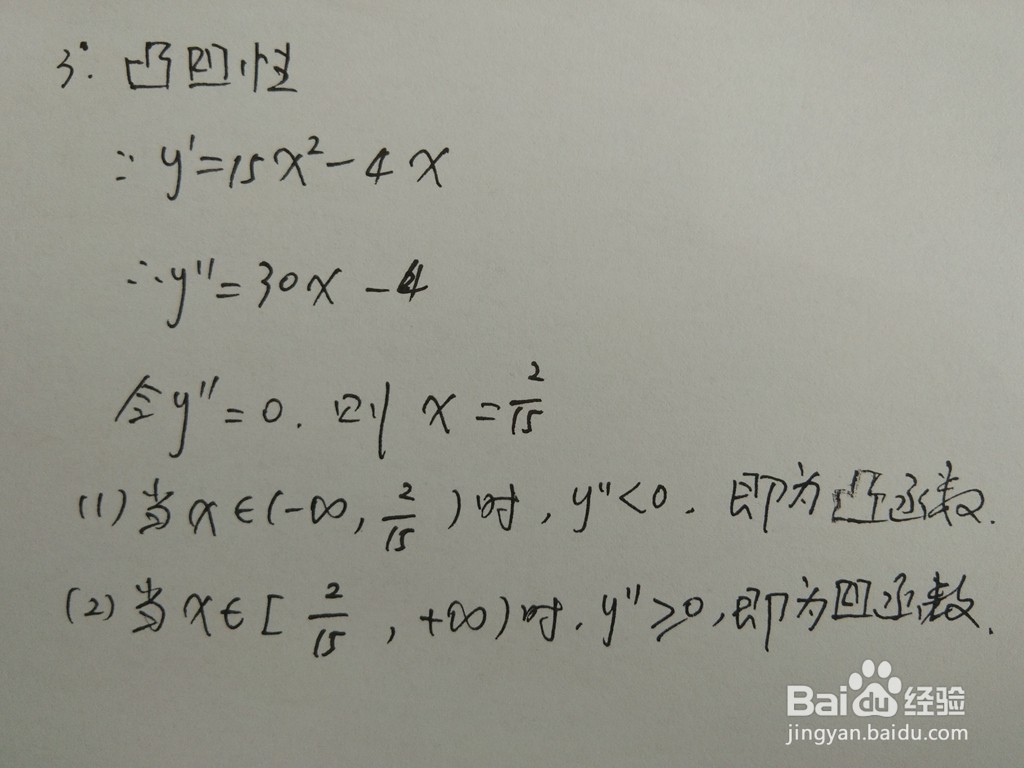 3°. 凸凹性
∵ y'=15x²-4x
∴y''=30x-4
令y''=0.则 x=2/15
(1)当x∈(-∞,2/15)时,y''<0.即为凸函数.
(2)当x∈[2/15,+∞)时.y''≥0,即为凹函数.
Bai经验
jingyan.baidu.com